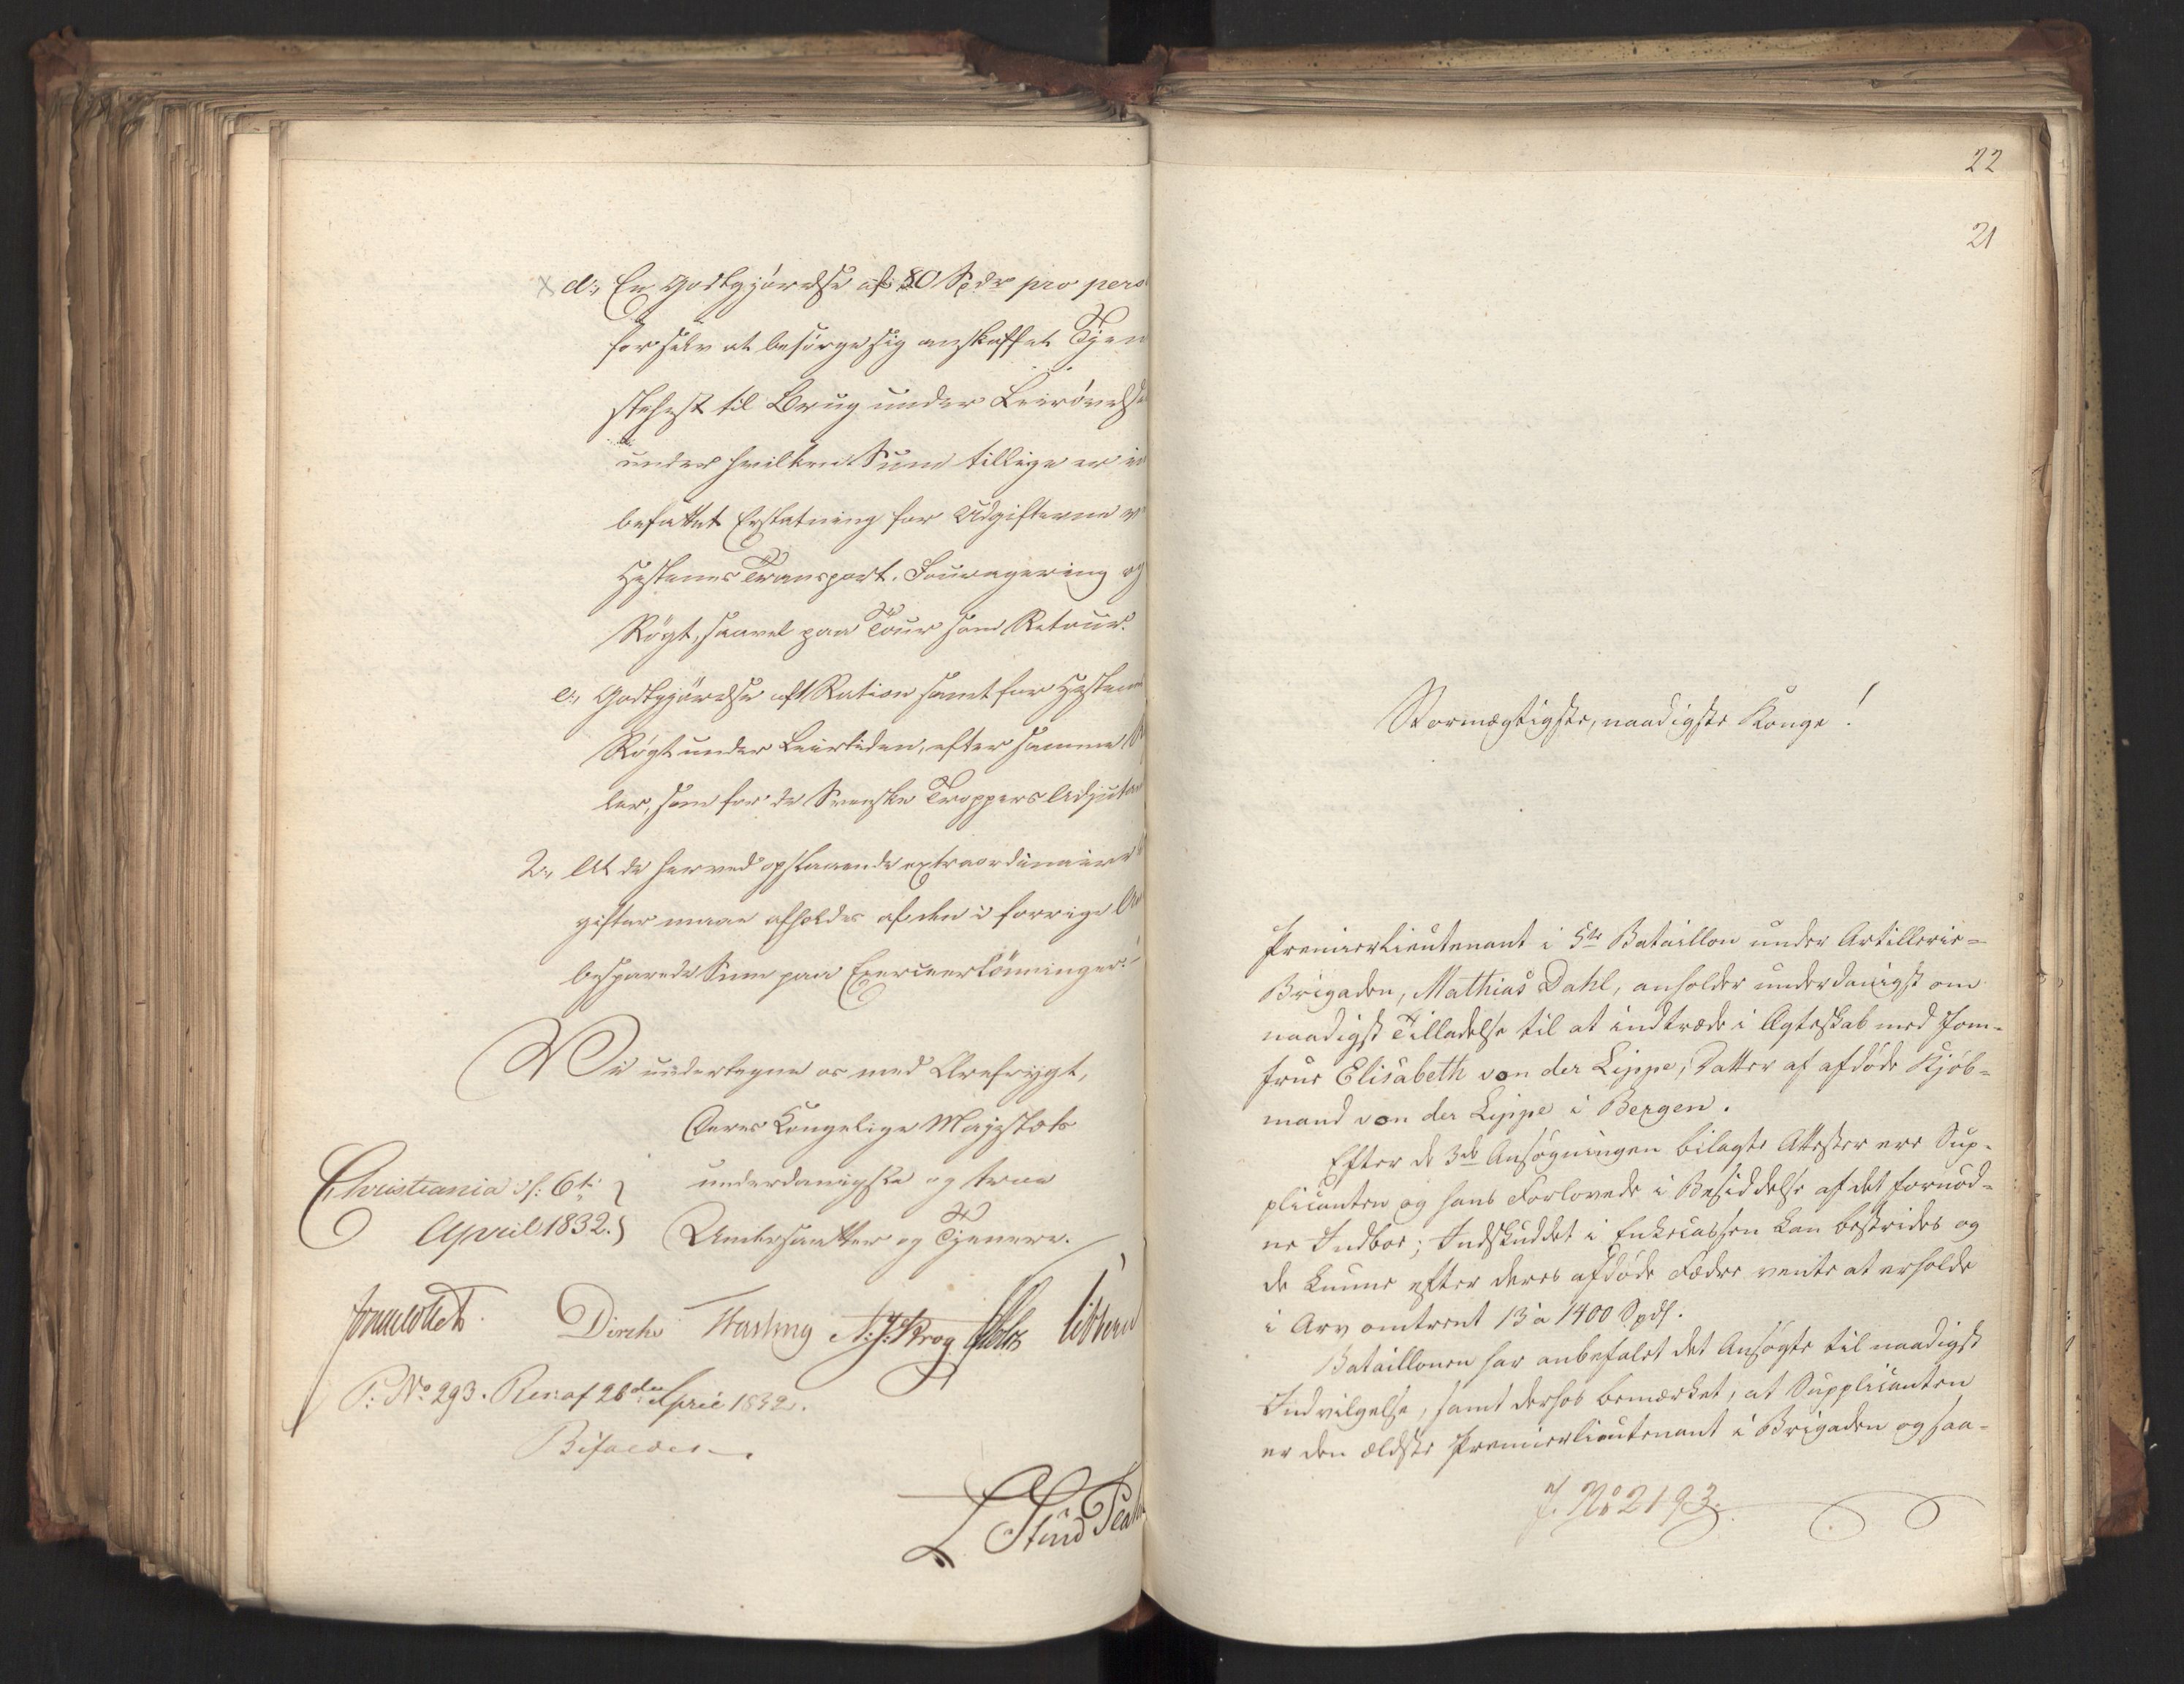 d., En Godtgjörelse af 80 Spdr pro pers
for selv at besörge sig anskaffet Tjen
stehest til Brug under Leirövelse
under hvilken Sum tillige er in
befattet Erstatning for Udgifterne v
Hestenes Transport, Fouragering og
Rögt, saavel paa Tour som Retour.
e., Godtgjörelse af 1 Ration samt for Hestenes
Rögt under Leirtiden, efter samme
ler, som for de Svenske Troppers Adjutan
2., At de herved opstaaende extraordinaire
gifter maae afholdes af den i forrige
besparede Sum paa Exerceerlönninger.
Vi undertegne os med Ærefrygt,
Deres Kongelige Majestæts
Christiania d: 6te underdanigste og troe
April 1832. Undersaatter og Tjenere.
Diriks N: J: Krog
P: No 293. Res: af 26de April 1832.
Bifaldes.
22
21
Stormægtigste, naadigste Konge!
Premierlieutenant i 5te Bataillon under Artillerie-
Brigaden, Mathias Dahl, anholder underdanigst om
naadigst Tilladelse til at indtræde i Ægteskab med Jom-
frue Elisabeth von der Lippe, Datter af afdöde Kjöb-
mand von der Lippe i Bergen.
Efter de 3de Ansögningen bilagte Attester ere Sup-
plicanten og hans Forlovede i Besiddelse af det fornöd-
ne Indboe; Indskuddet i Enkecassen kan bestrides og
de kunne efter deres afdöde Fædre vente at erholde
i Arv omtrent 13 à 1400 Spdl.
Bataillonen har anbefalet det Ansögte til naadigst
Indvilgelse, samt derhos bemærket, at Supplicanten
er den ældste Premierlieutenant i Brigaden og saa-
J. No 2193.